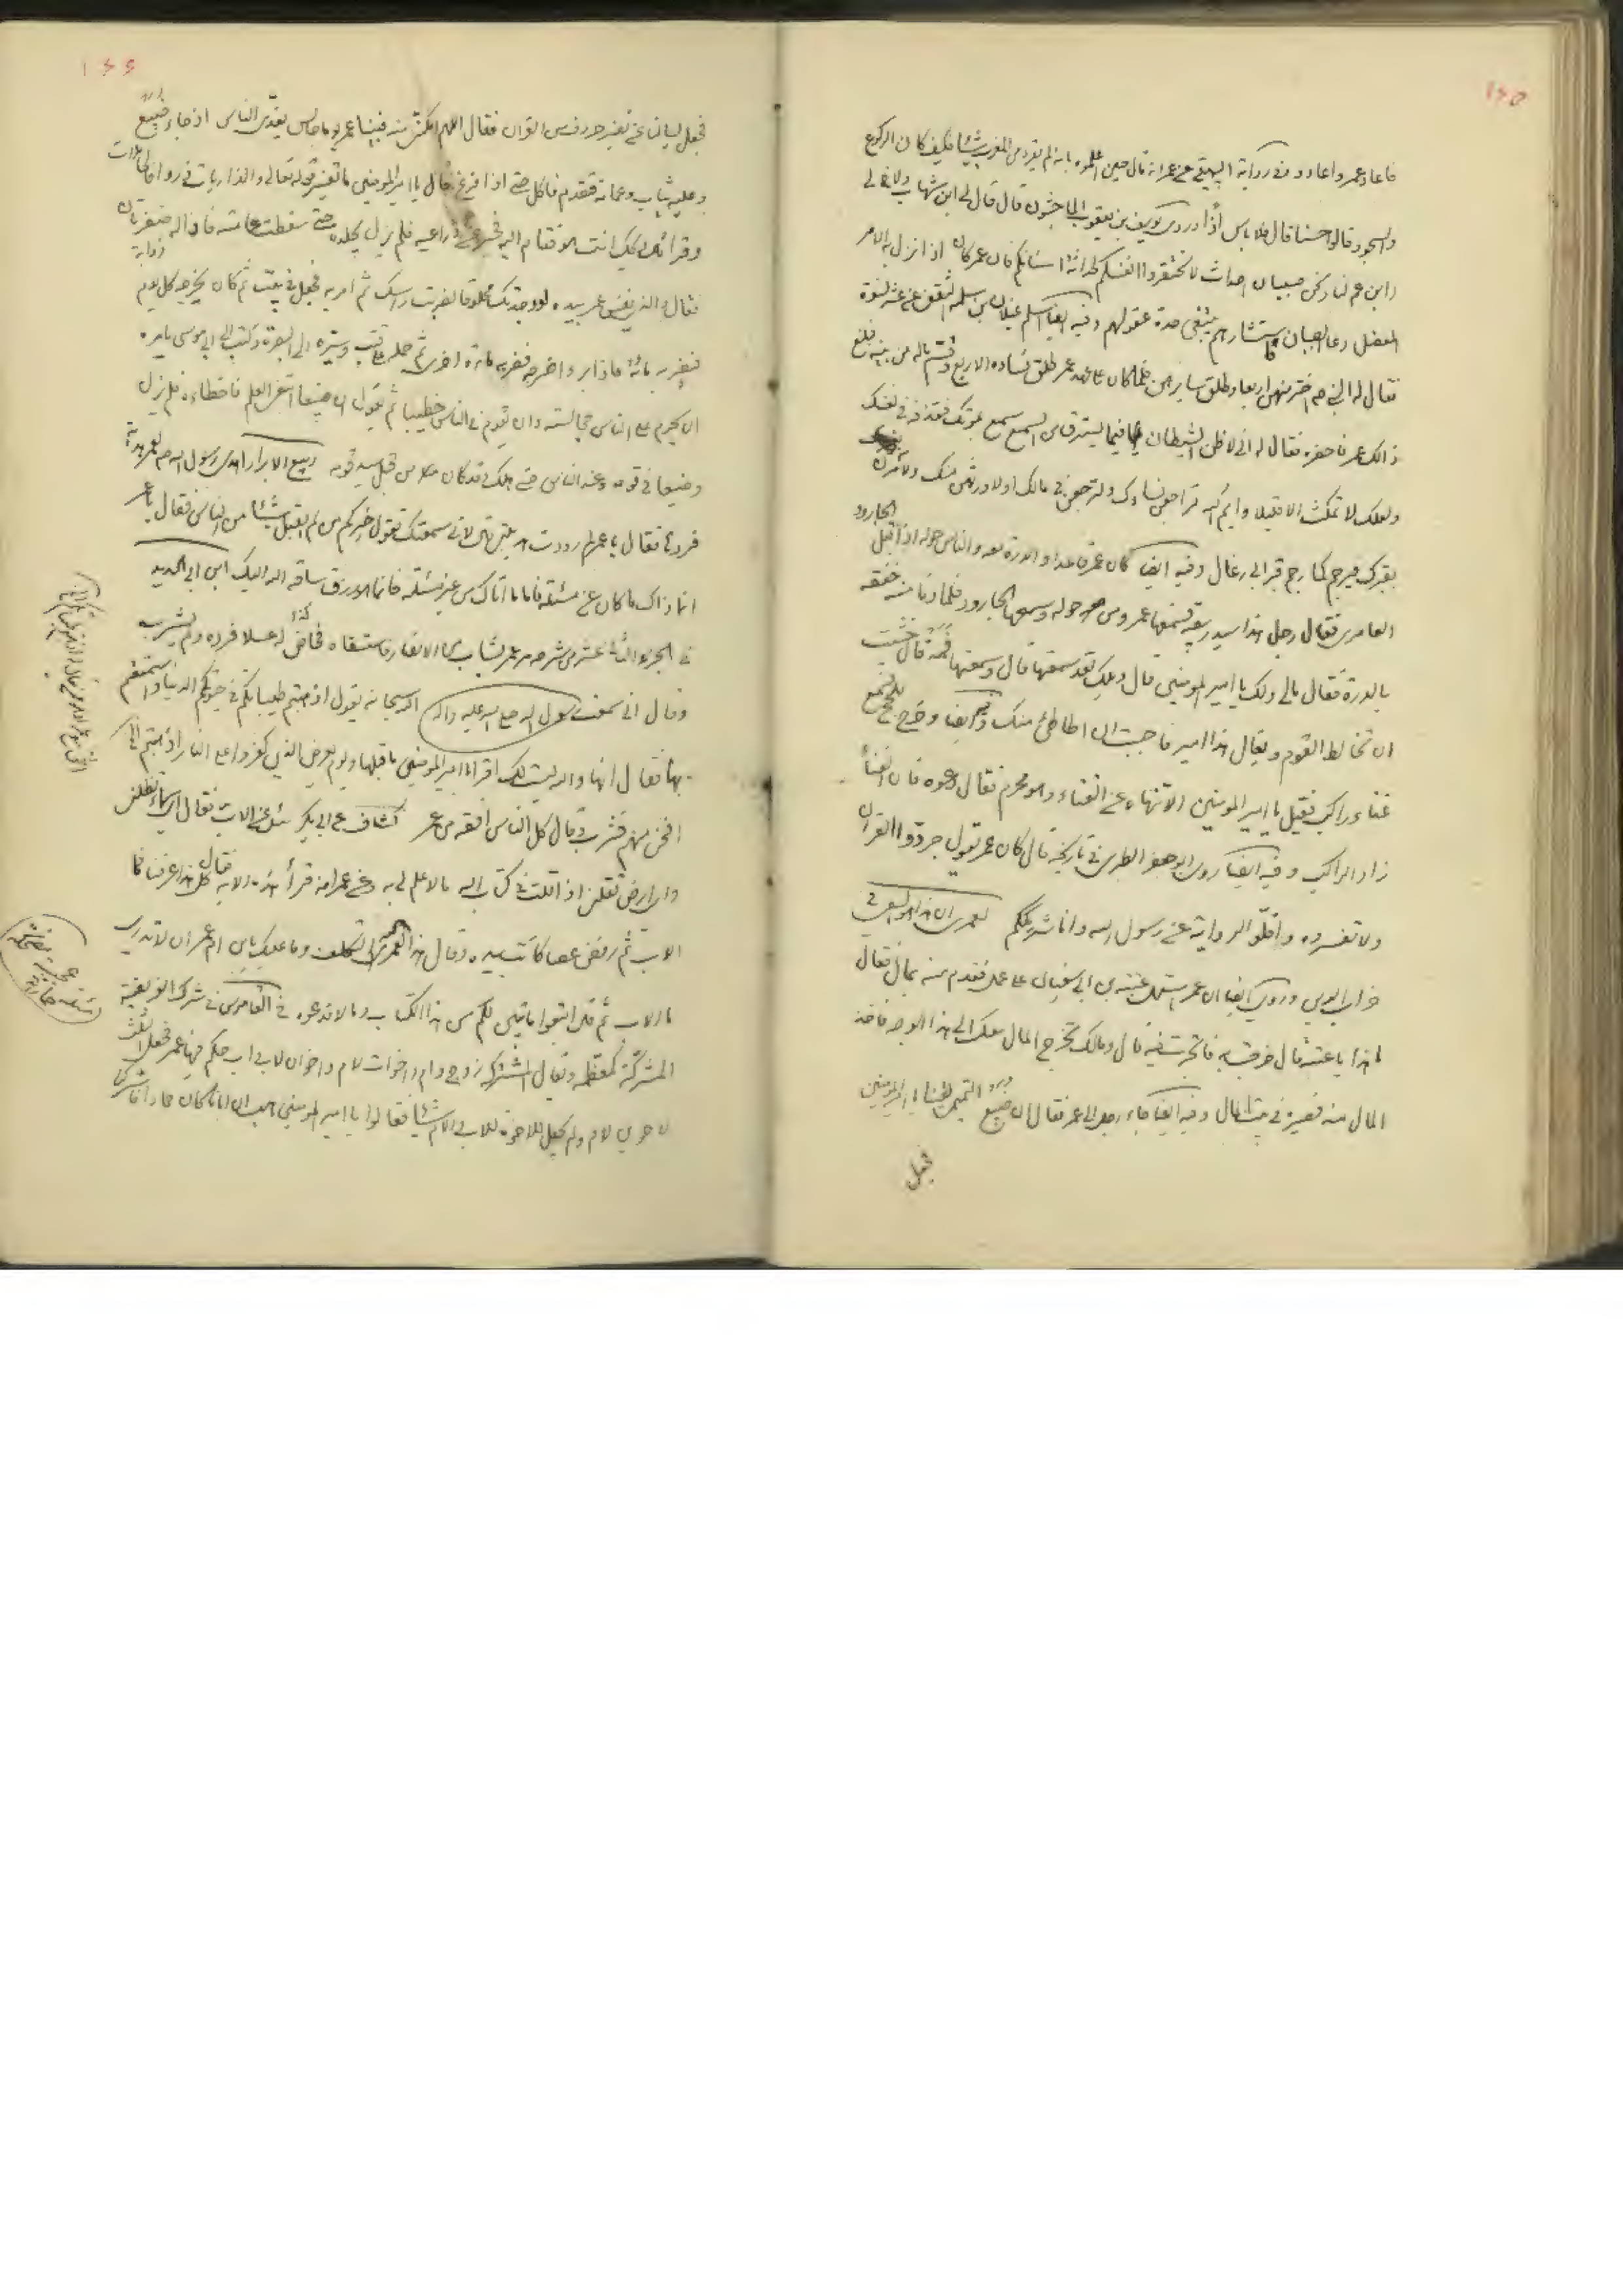 ١٢٥
فاعاد عمر واعاد وفي رواية البيهقي عن عمر انه قال حين اعلموه بانه لم يقرء في المغرب شيئا فكيف كان الركوع
والسجود قالوا حسنا قال فلا باس اذا وروى يوسف بن يعقوب الماجشون قال قال لي ابن شهاب ولاخ لي
وابن عم لنا ونحن صبيان احداث لا تحتقروا انفسكم لحداثة اسنانكم فان عمر كان اذا نزل به الامر
المعضل دعا الصبيان فاستشارهم يبتغي حدة عقولهم وفيه ايضا اسلم غيلان بن سلمة الثقفي عن عشر نسوة
فقال له النبي ص اختر منهن اربعا وطلق سايرهن فلما كان على عهد عمر طلق نساءه الاربع وقسم ماله بين بنيه فبلغ
ذالك عمر فاحضره فقال له اني لاظن الشيطان فيما يسترق من السمع سمع بموتك فقذفه في نفسك
ولعلك لا تمكث الا قليلا وايم الله لتراجعن نساءك ولترجعن في مالك او لاورثهن منك ولآمرن
بقبرك فيرجم كما رجم قبر ابي رغال وفيه ايضا كان عمر قاعدا والدرة معه والناس حوله اذ اقبل الجارود
العامري فقال رجل هذا سيد ربيعة فسمعها عمر ومن حوله وسمعها الجارود فلما دنا منه خفقه
بالدرة فقال مالي ولك يا امير المومنين قال ويلك لقد سمعتها قال وسمعتها فمه قال خشيت
ان تخالط القوم ويقال هذا امير فاحببت ان اطاطئ منك وفيه ايضا وخرج للحج فسمع
غناء راكب فقيل يا امير المومنين الا تنهاه عن الغناء وهو محرم فقال دعوه فان الغناء
زاد الراكب وفيه ايضا روى ابو جعفر الطبري في تاريخه قال كان عمر يقول جردوا القران
ولا تفسروه واقلوا الرواية عن رسول الله وانا شريككم لعمري ان هذا لهو السعي في
خراب الدين وروي ايضا ان عمر استعمل عتبة بن ابي سفيان على عمل فقدم منه بمال فقال
ما هذا يا عتبة قال خرجت به فاتجرت فيه قال ومالك تخرج المال معك الى هذا الوجه فاخذ
المال منه فصيره في بيت المال وفيه ايضا جاء رجل الى عمر فقال ان ضبيع التميمي لقينا يا امير المومنين
فجعل
١٢٦
فجعل يسالنا عن تفسير حروف من القران فقال اللهم امكني منه فبينا عمر يوما جالس يغدي الناس اذ جاءه ضبيع
وعليه ثياب وعمامة فتقدم فاكل حتى اذا فرغ قال يا امير المومنين ما تفسير قوله تعالى والذاريات ذروا فالحاملات
وقرا قال ويحك انت هو فقام اليه فحسر عن ذراعيه فلم يزل يجلده حتى سقطت عمامته فاذا له ضفيرتان
فقال والذي نفس عمر بيده لو وجدتك محلوقا لضربت راسك ثم امر به فجعل في بيت ثم كان يخرجه كل يوم
فيضربه مائة فاذا برء اخرجه فضربه مائة اخرى ثم حمله على قتب وسيره الى البصرة وكتب الى ابي موسى يامره
ان يحرم على الناس مجالسته وان يقوم في الناس خطيبا ثم يقول ان ضبيعا ابتغى العلم فاخطاءه فلم يزل
وضيعا في قومه وعند الناس حتى هلك وقد كان من قبل سيد قومه ربيع الابرار اهدى رسول الله ص لعمر هدية
فردها فقال يا عمر لم رددت هديتي قال لاني سمعتك تقول خيركم من لم يقبل شيئا من الناس فقال يا عمر
انما ذاك ما كان عن مسئلة فاما ما اتاك من غير مسئلة فانما هو رزق ساقه الله اليك ابن ابي الحديد
في الجزء الثاني عشر من شرحه مر عمر بشاب من الانصار فاستسقاه فخاض له عسلا فرده ولم يشرب
وقال اني سمعت رسول الله صلى الله عليه واله الله سبحانه يقول اذهبتم طيباتكم في حيوتكم الدنيا واستمتعتم
بها فقال انها والله ليست لك اقراء يا امير المومنين ما قبلها ويوم يعرض الذين كفروا على النار اذهبتم
افنحن منهم فشرب وقال كل الناس افقه من عمر كشاف عن ابي بكر سئل عن الاب فقال اي سماء تظلني
واي ارض تقلني اذا قلت في كتاب الله ما لا علم لي به وعن عمر انه قرأ هذه الاية فقال كل هذا عرفنا فما
الاب ثم رفض عصا كانت بيده وقال هذا لعمر الله التكلف وما عليك يا ابن ام عمر ان لا تدري
ما الاب ثم قال اتبعوا ما تبين لكم من هذا الكتاب وما لا فدعوه في القاموس في شرك الفريضة
المشركة كمعظمة ويقال المشتركة زوج وام واخوات لام واخوان لاب واب حكم فيها عمر فجعل الثلث
لاخوين لام ولم يجعل للاخوة للاب والام شيئا فقالوا يا امير المومنين هب ان ابانا كان حمارا فاشركنا